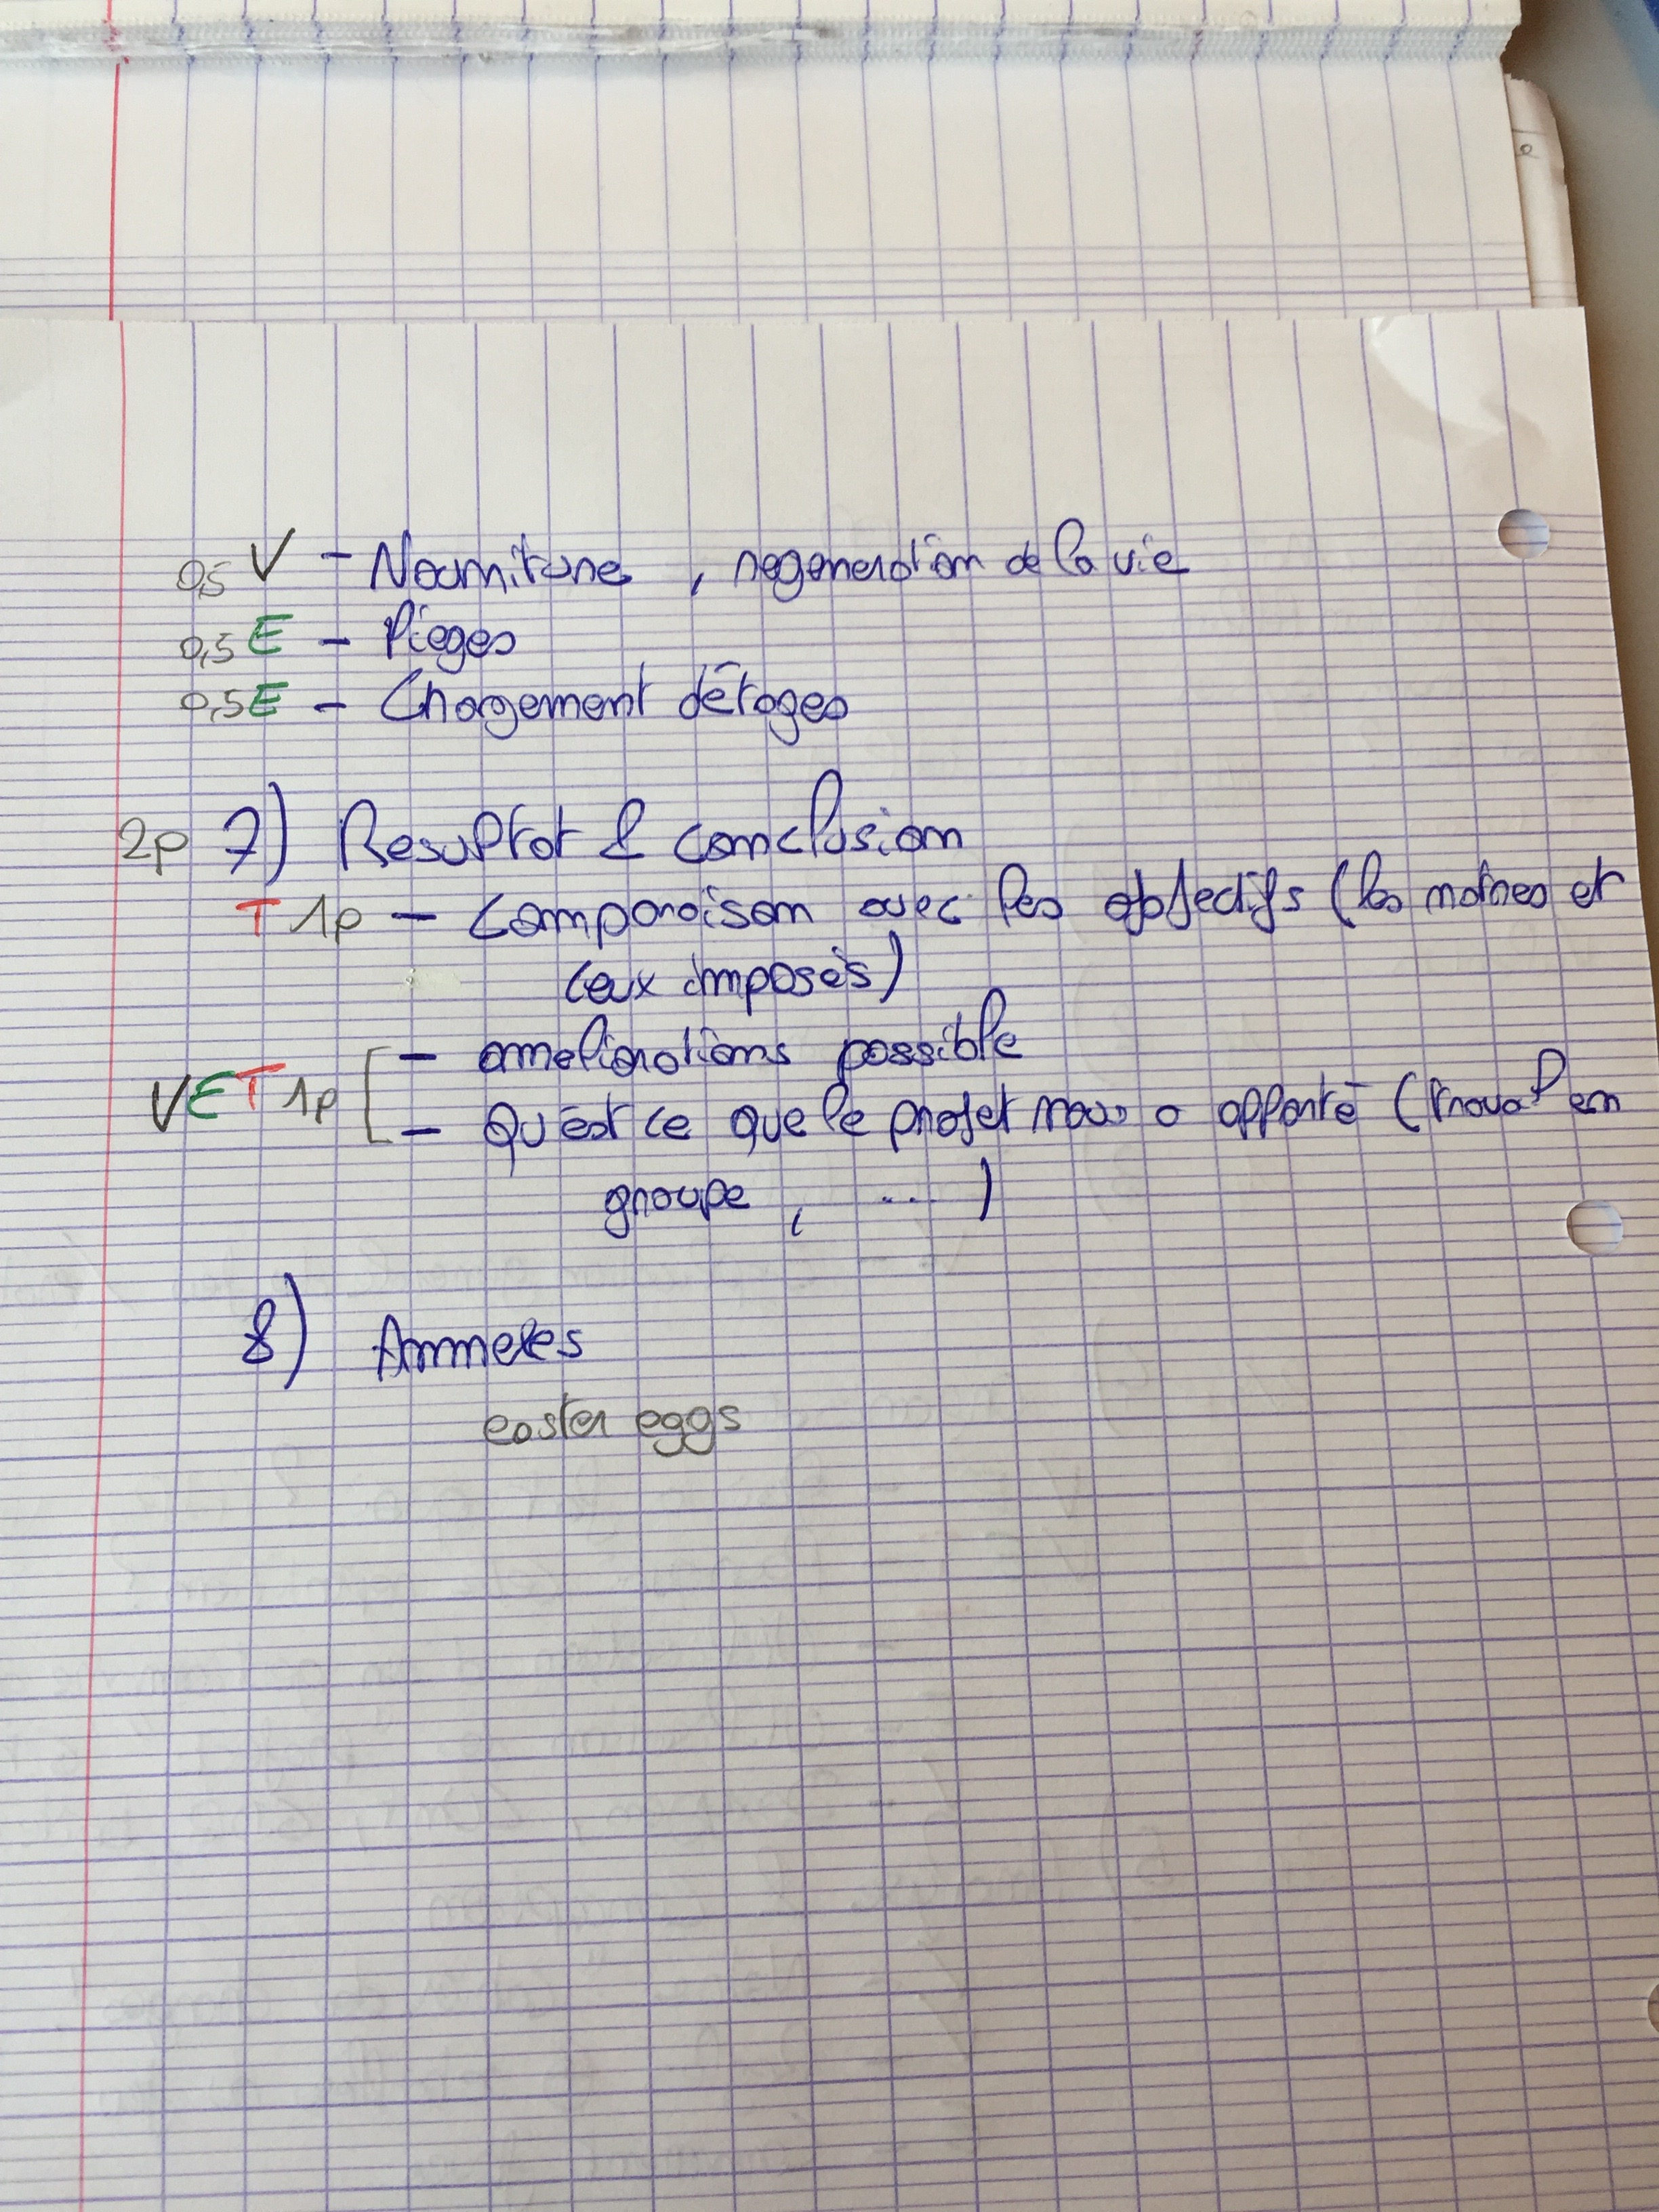 0,5 V - Nourriture, regeneration de la vie
0,5 E - Pièges
0,5 E - Chargement d'étages
2p 7) Resultat & conclusion
T 1p - Comparaison avec les objectifs (les notres et
ceux imposés)
- ameliorations possible
VET 1p - Qu'est ce que le projet nous a apporté (travail en
groupe, ...)
8) Annexes
easter eggs